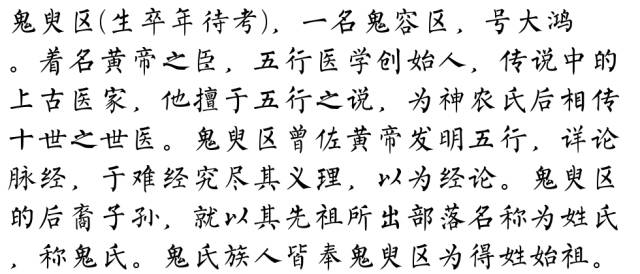 鬼臾区(生卒年待考)，一名鬼容区，号大鸿
。着名黄帝之臣，五行医学创始人，传说中的
上古医家，他擅于五行之说，为神农氏后相传
十世之世医。鬼臾区曾佐黄帝发明五行，详论
脉经，于难经究尽其义理，以为经论。鬼臾区
的后裔子孙，就以其先祖所出部落名称为姓氏
，称鬼氏。鬼氏族人皆奉鬼臾区为得姓始祖。